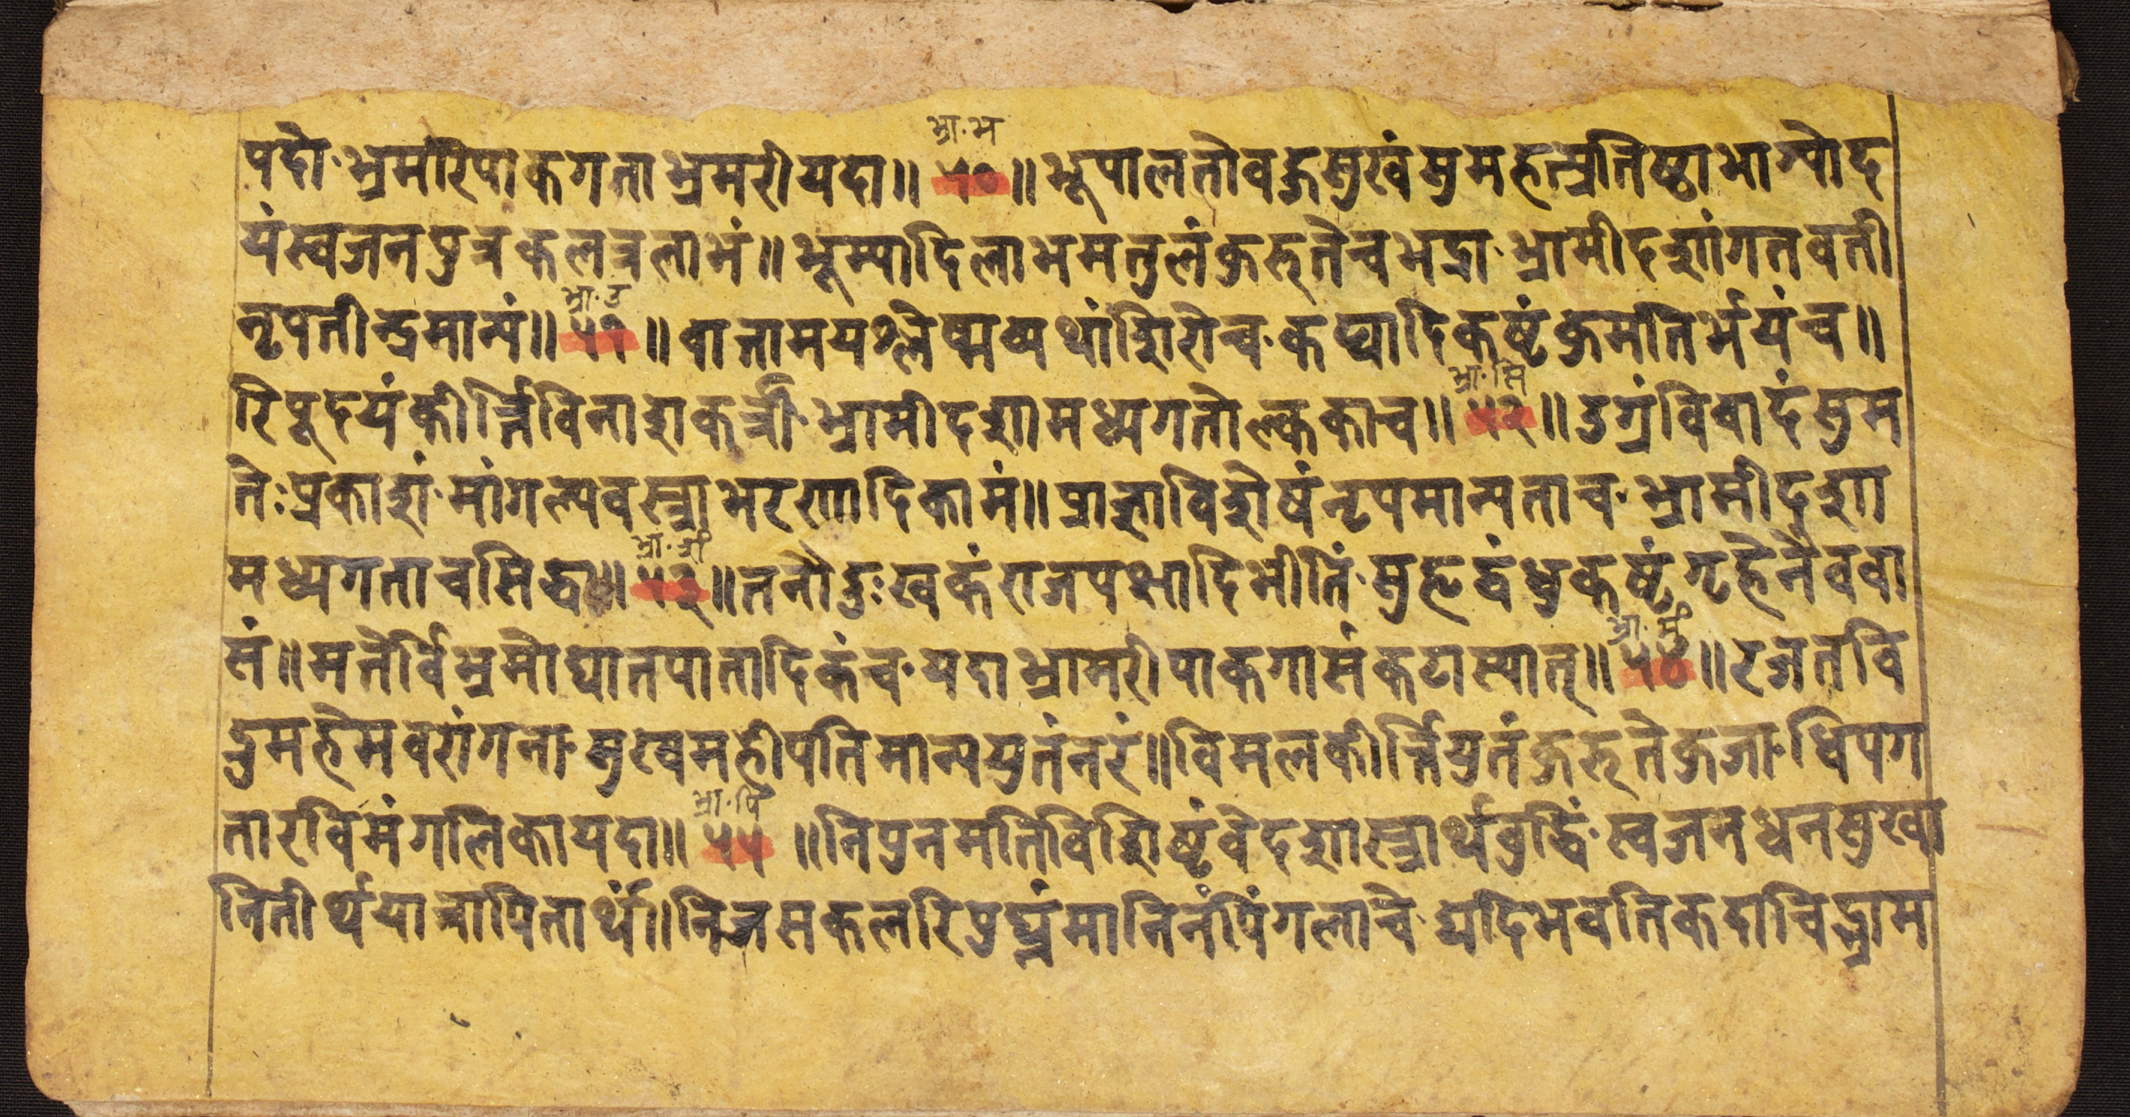 भ्रा॰भ
पदौ॰भ्रमरिपाकगताभ्रमरीयदा॥ ५० ॥भूपालतोवह्नसुखंसुमहत्प्रतिष्ठाभाग्योद
यंस्वजनपुत्रकलत्रलाभं॥भूम्यादिलाभमतुलंकुरुतेचभद्रा॰भ्रामीदशांगतवती
भ्रा॰उ
नृपतीन्द्रमान्यं॥ ५१ ॥वातामयश्लेष्मव्यथांशिरोच॰कट्यादिकष्टंकुमतिर्भयंच॥
भ्रा॰सि
रिपूदयंकीर्त्तिविनाशकर्त्री॰भ्रामीदशामध्यगतोल्ककाच॥ ५२ ॥उग्रंविवादंसुम
तेःप्रकाशं॰मांगल्यवस्त्राभरणादिकामं॥प्राज्ञाविशेषंनृपमान्यताच॰भ्रामीदशा
भ्रा॰
मध्यगताचसिद्धा॥ ५३ ॥तनोदुःखकंराजपक्षादिभीतिं॰सुहृद्वंधुकष्टंगृहेनैववा
भ्रा॰
सं॥मतेर्विभ्रमोद्यानपातादिकंच॰यदाभ्रामरीपाकगासंकटास्यात्॥ ५४ ॥रजतवि
द्रुमहेमवरांगना॰सुखमहीपतिमान्ययुतंनरं॥विमलकीर्त्तियुतंकुरुतेकुजा॰धिपग
भ्रा॰पिं
तारविमंगलिकायदा॥ ५५ ॥निपुनमतिविशिष्टंवेदशास्त्रार्थवुद्धिं॰स्वजनधनसुखा
नितीर्थयात्रापितार्थं॥निजसकलरिपुघ्नंमानिनंपिंगलाचे॰द्यदिभवतिकदाचिद्भ्राम